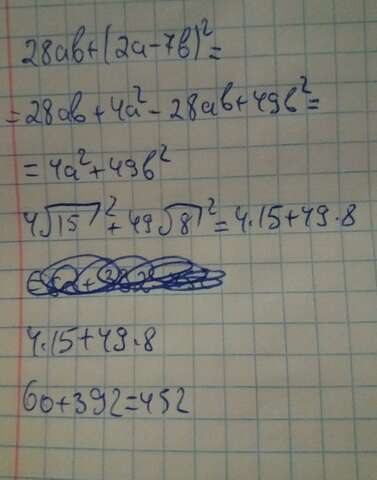 28ab+(2a-7b)²=
=28ab+4a²-28ab+49b²=
=4a²+49b²
4√15²+49√8²=4·15+49·8
4·15+49·8
60+392=452